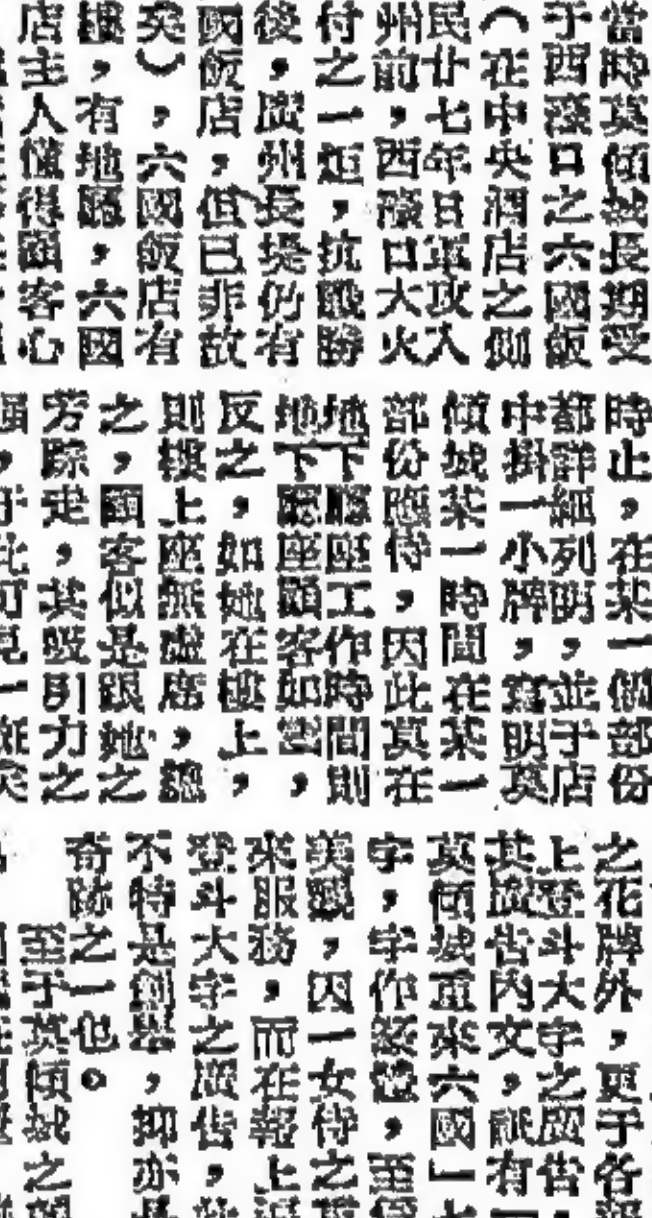 當時莫傾城長期受
于西濠口之六國飯
(在中央酒店之側
民廿七年日軍攻入
州前,西濠口大火
付之一炬,抗戰勝
後,廣州長堤仍有
國飯店,但已非故
矣),六國飯店有
樓,有地廳,六國
店主人懂得顧客心
時止,在某一個部份
都詳細列明,並于店
中掛一小牌,寫明莫
傾城某一時間在某一
部份隨侍,因此莫在
地下廳座工作時間則
地下廳座顧客如雲,
反之,如她在樓上,
則樓上座無虛席,
之,顧客似是跟她之
芳踪走,其吸引力之
之花牌外,更于各
上登斗大字之廣告
其廣告內文,祇有
莫傾城重來六國」
字,字作 體,至
美麗,因一女侍之
來服務,而在報上
登斗大字之廣告,
不特是創舉,抑亦
奇跡之一也。
至于莫傾城之